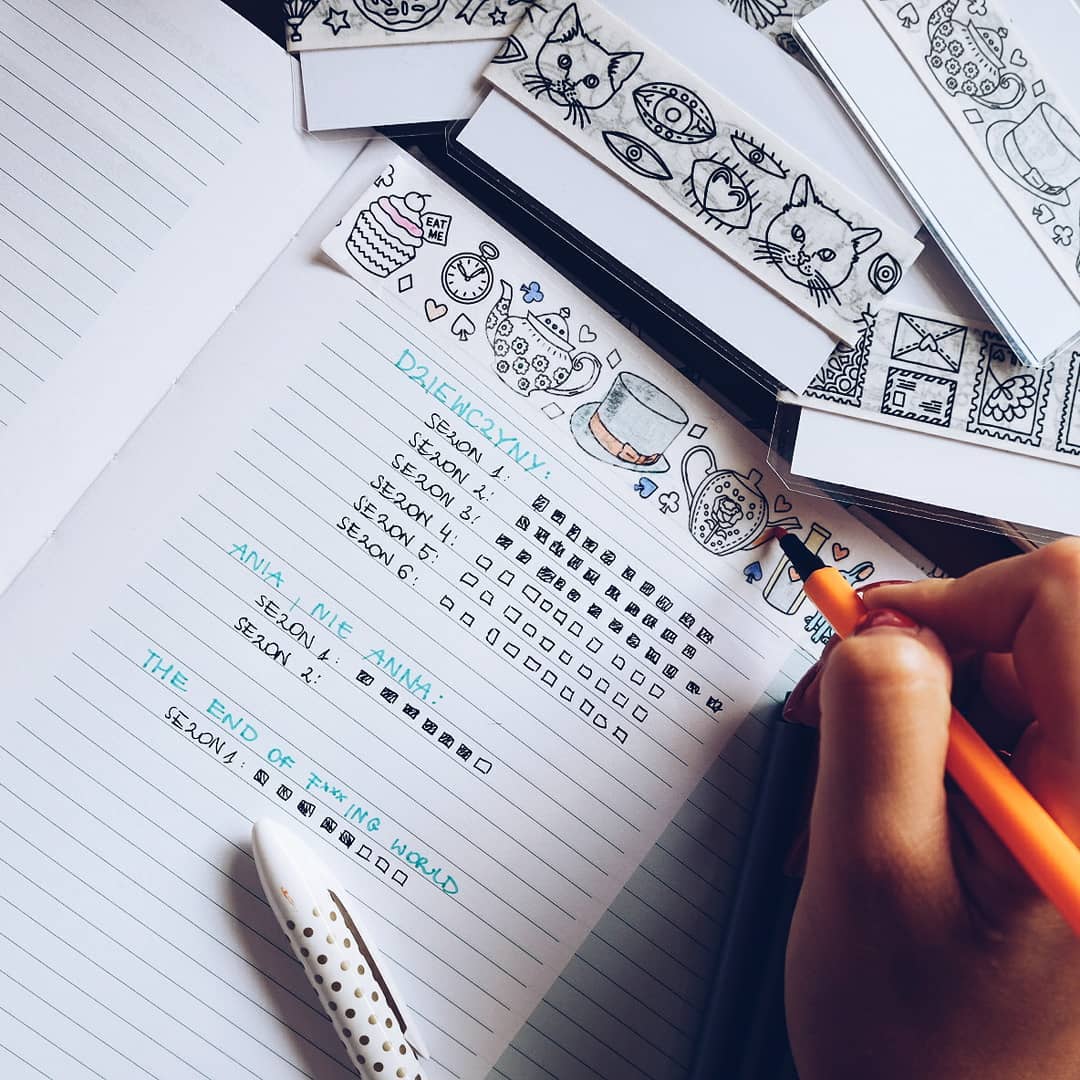 EAT
ME
DZIEWCZYNY:
SEZON 1:
SEZON 2:
SEZON 3:
SEZON 4:
SEZON 5:
SEZON 6:
ANIA, NIE ANNA:
SEZON 1:
SEZON 2:
THE END OF F***ING WORLD
SEZON 1: